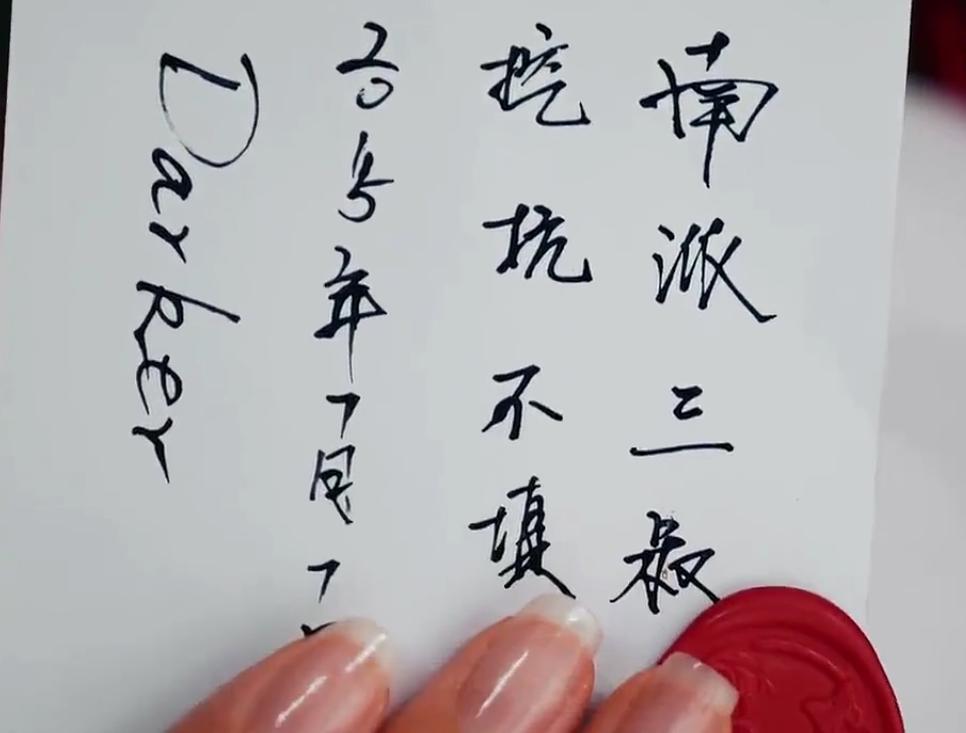 南派三叔
挖抗不填
2015年7月7
Darker